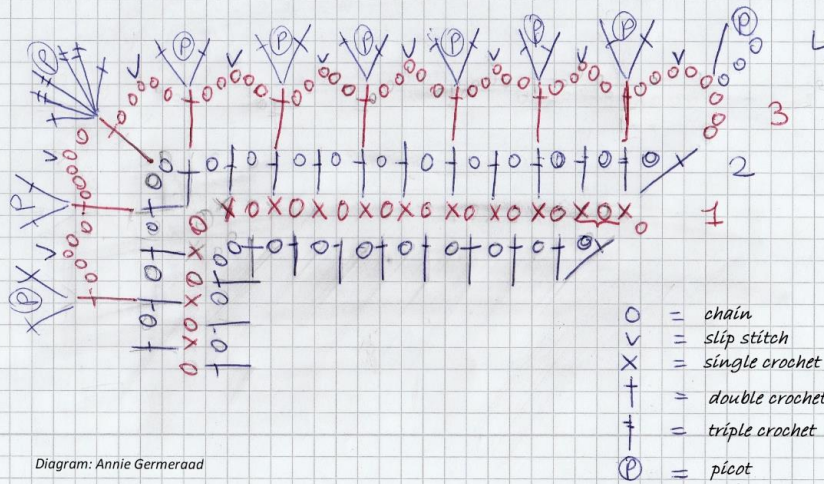 3
2
1
O = chain
v = slip stitch
x = single crochet
† = double crochet
‡ = triple crochet
Ⓟ = picot
Diagram: Annie Germeraad